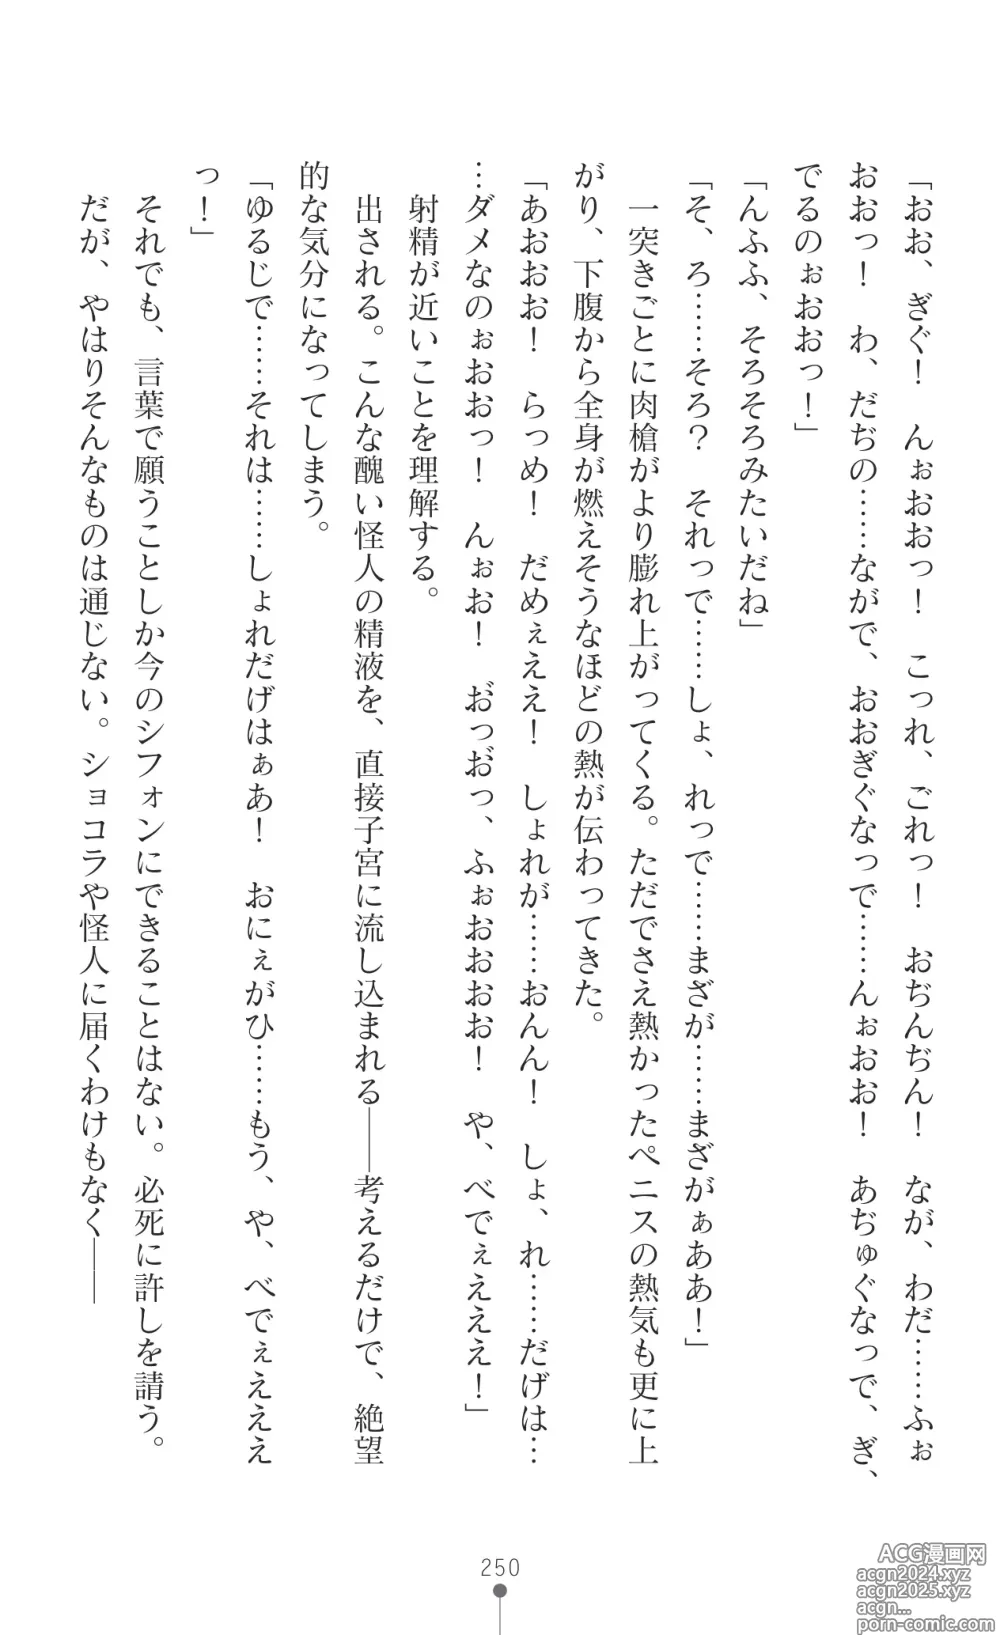 「おお、ぎぐ！　んぉおおっ！　こっれ、ごれっ！　おぢんぢん！　なが、わだ……ふぉ
おおっ！　わ、だぢの……ながで、おおぎぐなっで……んぉおお！　あぢゅぐなっで、ぎ、
でるのぉおおっ！」
「んふふ、そろそろみたいだね」
「そ、ろ……そろ？　それっで……しょ、れっで……まざが……まざがぁああ！」
　一突きごとに肉槍がより膨れ上がってくる。ただでさえ熱かったペニスの熱気も更に上
がり、下腹から全身が燃えそうなほどの熱が伝わってきた。
「あおおお！　らっめ！　だめぇええ！　しょれが……おんん！　しょ、れ……だげは…
…ダメなのぉおおっ！　んぉお！　お゙っお゙っ、ふぉおおおお！　や、べでぇえええ！」
　射精が近いことを理解する。
　出される。こんな醜い怪人の精液を、直接子宮に流し込まれる――考えるだけで、絶望
的な気分になってしまう。
「ゆるじで……それは……しょれだげはぁあ！　おにぇがひ……もう、や、べでぇえええ
っ！」
　それでも、言葉で願うことしか今のシフォンにできることはない。必死に許しを請う。
　だが、やはりそんなものは通じない。ショコラや怪人に届くわけもなく――
250
ACG漫画网
acgn2024.xyz
acgn2025.xyz
acgn...
porn-comic.com